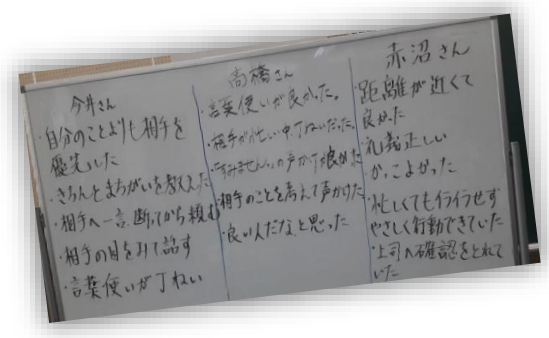 今井さん
・自分のことよりも相手を
優先した
・きちんとまちがいを教えた
・相手へ一言、断ってから頼む
・相手の目をみて話す
・言葉使いが丁ねい
高橋さん
・言葉使いが良かった。
・相手が忙しい中丁ねいだった。
・「すみません」の声かけが良かった
・相手のことを考えて声かけた
・良い人だな、と思った
赤沼さん
距離が近くて
良かった
・礼義正しい
かっこよかった
・忙しくてもイライラせず
やさしく行動できていた
・上司へ確認をとれて
いた